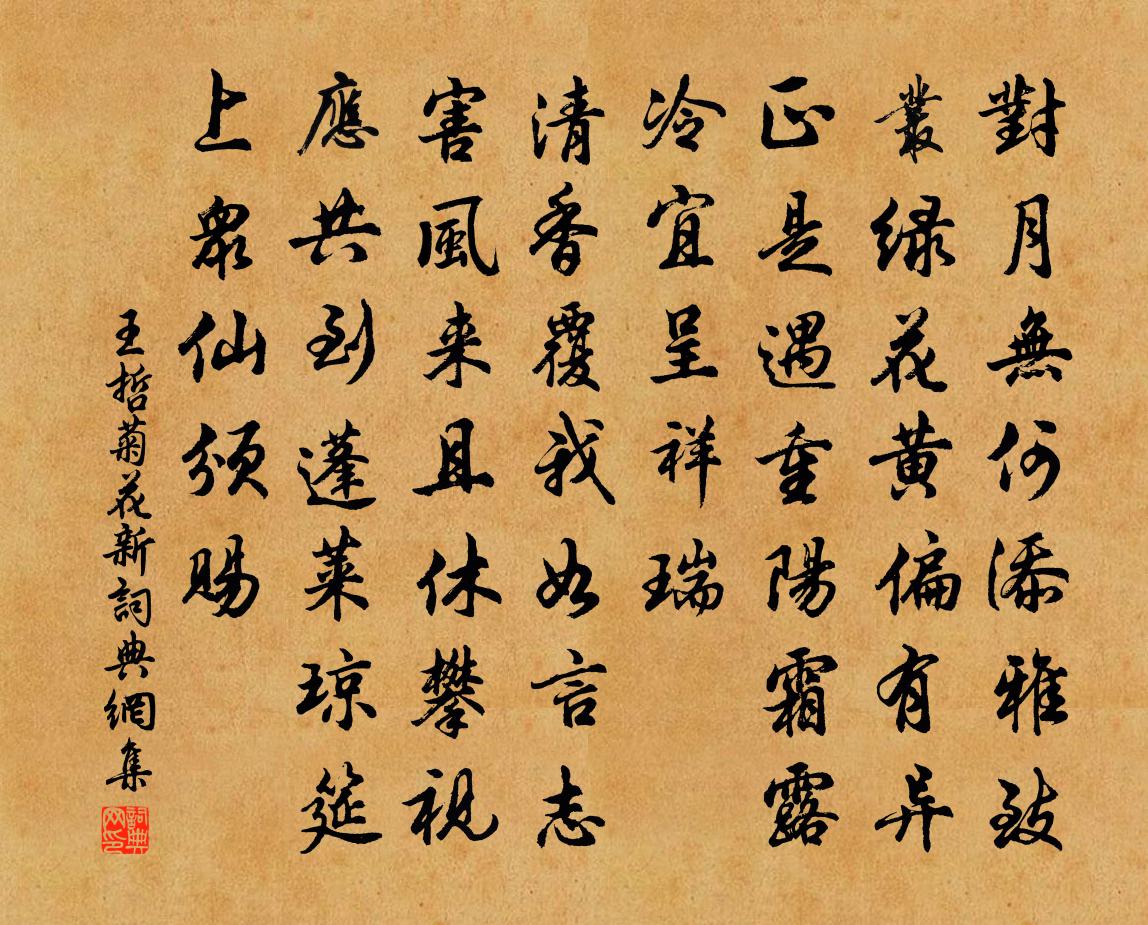 對月無何添雅致
叢緑花黄偏有异
正是遇重陽霜露
冷宜呈祥瑞
清香覆我如言志
害風来且休攀視
應共到蓬萊琼筵
上眾仙頒賜
王哲菊花新詞典網集
詞典網印